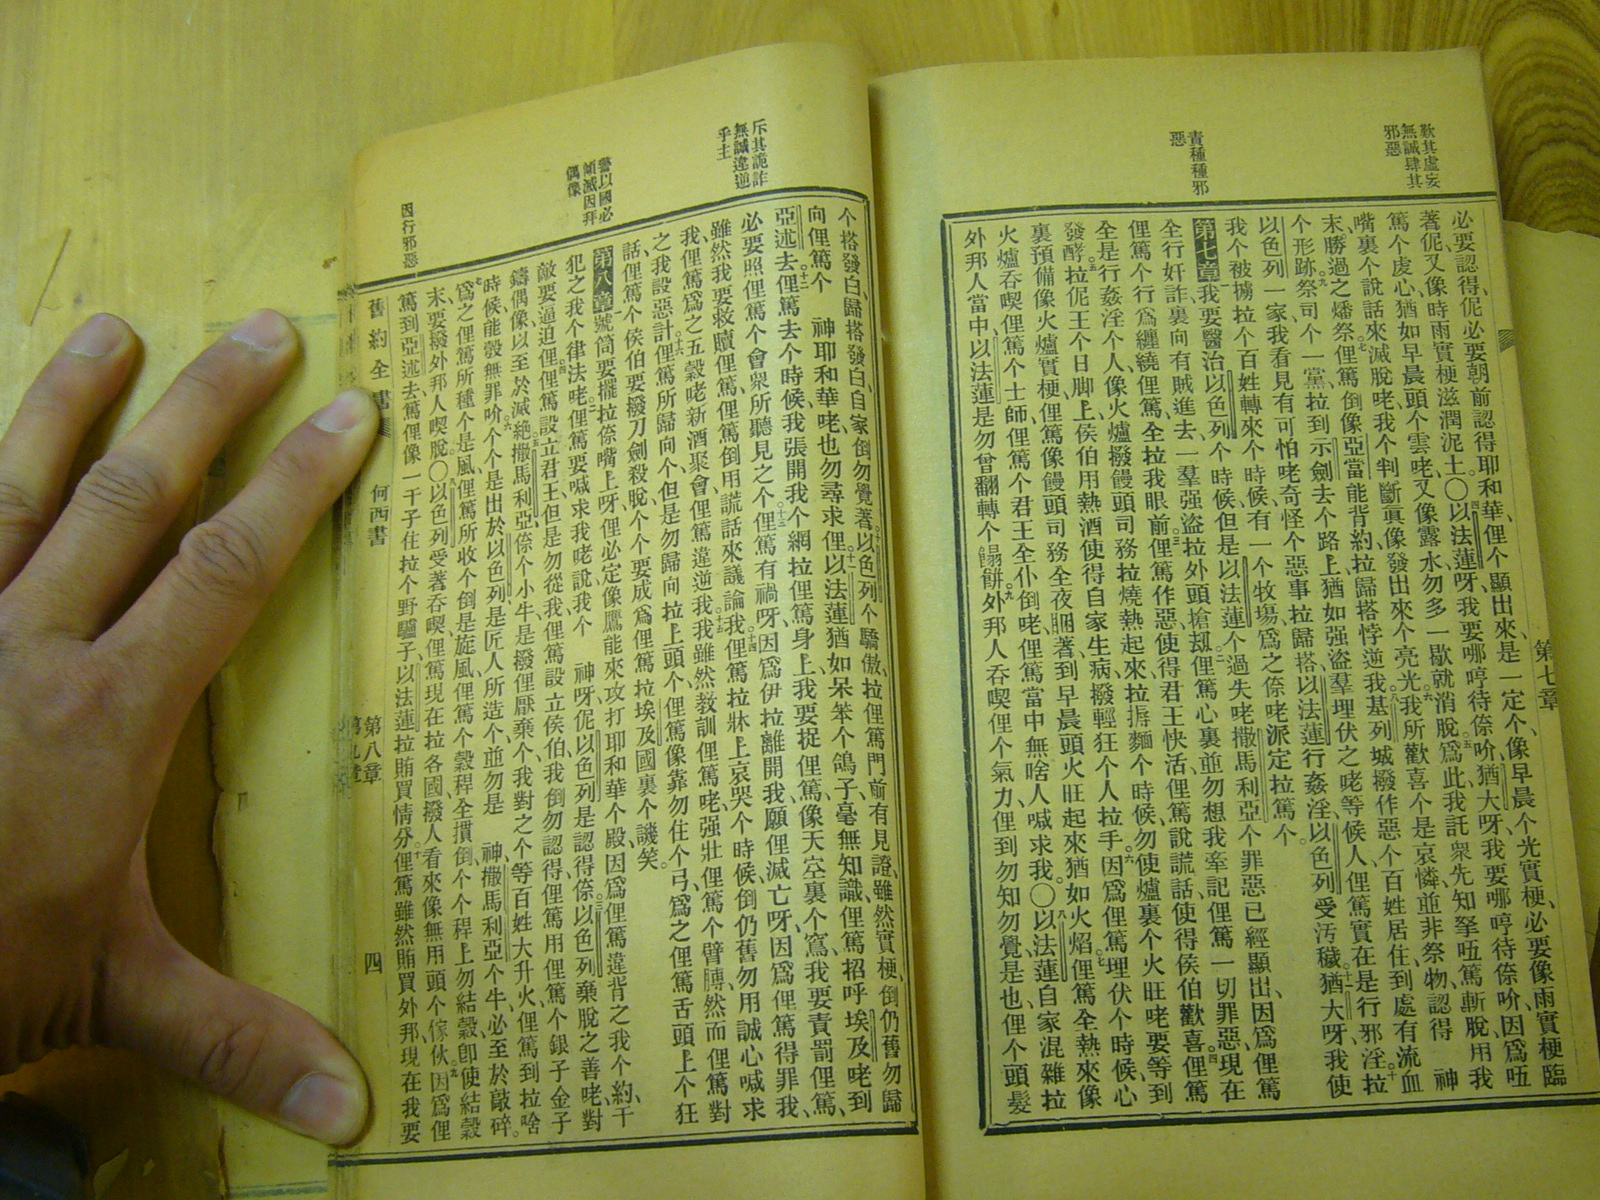 歎其虛妄
無誠肆其
邪惡
責種種邪
惡
第七章
必要認得伲必要朝前認得耶和華俚个顯出來是一定个像早晨个光實梗必要像雨實梗臨
著伲又像時雨實梗滋潤泥土〇以法蓮呀我要哪哼待倷吤猶大呀我要哪哼待倷吤因爲㑚
篤个虔心猶如早晨頭个雲咾又像露水勿多一歇就消脫爲此我託衆先知拏㑚篤斬脫用我
嘴裏个說話來滅脫咾我个判斷眞像發出來个亮光我所歡喜个是哀憐並非祭物認得 神
末勝過之燔祭俚篤倒像亞當能背約拉歸搭悖逆我基列城撥作惡个百姓居住到處有流血
个形跡祭司个一黨拉到示劍去个路上猶如强盜羣埋伏之咾等候人俚篤實在是行邪淫拉
以色列一家我看見有可怕咾奇怪个惡事拉歸搭以法蓮行姦淫以色列受汚穢猶大呀我使
我个被擄拉个百姓轉來个時候有一个牧場爲之倷咾派定拉篤个
第七章 我要醫治以色列个時候但是以法蓮个過失咾撒馬利亞个罪惡已經顯出因爲俚篤
全行奸詐裏向有賊進去一羣强盜拉外頭搶刼俚篤心裏並勿想我牽記俚篤一切罪惡現在
俚篤个行爲纏繞俚篤全拉我眼前俚篤作惡使得君王快活俚篤說謊話使得侯伯歡喜俚篤
全是行姦淫个人像火爐撥饅頭司務拉燒熱起來拉搙麵个時候勿使爐裏个火旺咾要等到
發酵拉伲王个日脚上侯伯用熱酒使得自家生病撥輕狂个人拉手因爲俚篤埋伏个時候心
裏預備像火爐實梗俚篤像饅頭司務全夜睏著到早晨頭火旺起來猶如火焰俚篤全熱來像
火爐吞喫俚篤个士師俚篤个君王全仆倒咾俚篤當中無啥人喊求我〇以法蓮自家混雜拉
外邦人當中以法蓮是勿曾翻轉个餳餅外邦人吞喫俚个氣力俚到勿知勿覺是也俚个頭髮
斥其詭詐
無誠違逆
乎主
警以國必
傾滅因拜
偶像
因行邪惡
个搭發白歸搭發白自家倒勿覺著以色列个驕傲拉俚篤門前有見證雖然實梗倒仍舊勿歸
向俚篤个 神耶和華咾也勿尋求俚以法蓮猶如呆笨个鴿子毫無知識俚篤招呼埃及咾到
亞述去俚篤去个時候我張開我个網拉俚篤身上我要捉俚篤像天空裏个窵我要責罰俚篤
必要照俚篤个會衆所聽見之个俚篤有禍呀因爲伊拉離開我願俚滅亡呀因爲俚篤得罪我
雖然我要救贖俚篤俚篤倒用謊話來議論我俚篤拉牀上哀哭个時候倒仍舊勿用誠心喊求
我俚篤爲之五穀咾新酒聚會俚篤違逆我我雖然教訓俚篤咾强壯俚篤个臂膊然而俚篤對
之我設惡計俚篤所歸向个但是勿歸向拉上頭个俚篤像靠勿住个弓爲之俚篤舌頭上个狂
話俚篤个侯伯要撥刀劍殺脫个个要成爲俚篤拉埃及國裏个譏笑
第八章 號筒要擺拉倷嘴上呀俚必定像鷹能來攻打耶和華个殿因爲俚篤違背之我个約干
犯之我个律法咾俚篤要喊求我咾說我个 神呀伲以色列是認得倷以色列棄脫之善咾對
敵要逼迫俚俚篤設立君王但是勿從我俚篤設立侯伯我倒勿認得俚篤用俚篤个銀子金子
鑄偶像以至於滅絶撒馬利亞倷个小牛是撥俚厭棄个我對之个等百姓大升火俚篤到拉啥
時候能彀無罪吤个个是出於以色列是匠人所造个並勿是 神撒馬利亞个牛必至於敲碎
爲之俚篤所種个是風俚篤所收个倒是旋風俚篤个穀稈全摜倒个个稈上勿結穀卽使結穀
末要撥外邦人喫脫〇以色列受著吞喫俚篤現在拉各國撥人看來像無用頭个傢伙因爲俚
篤到亞述去篤俚像一干子住拉个野驢子以法蓮拉賄買情分俚篤雖然賄買外邦現在我要
舊約全書 何西書 第八章 第九章 四